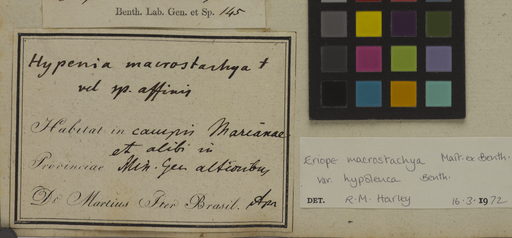 Benth. Lab. Gen. et Sp. 145
Hypenia macrostachya †
vel sp. affinis
Habitat in campis Marianae
et alibi in
Provinciae Min. Gen. altioribus
Dr. Martius Iter Brasil. Apr
Eriope macrostachya Mart. ex Benth.
var. hypoleuca Benth.
DET. R.M. Harley 16.3.1972